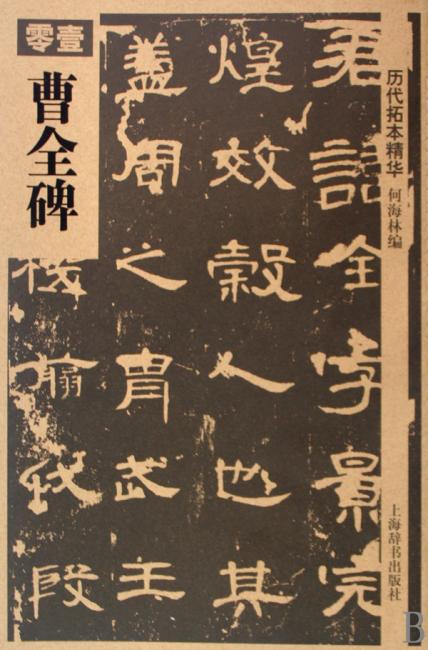 零壹
曹全碑
历代拓本精华
何海林编
上海辞书出版社
君諱全字景完
煌效穀人也其
盖周之胄武王
伐殷
B